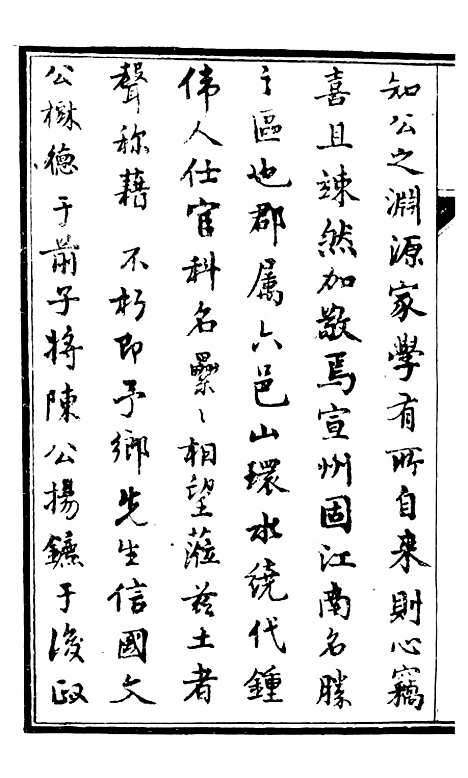 知公之淵源家學有所自来則心竊
喜且竦然加敬焉宣州固江南名勝
之區也郡属六邑山環水繞代鍾
偉人仕宦科名纍〻相望蒞茲土者
聲称藉 不朽即予鄉先生信國文
公樹德于前子將陳公揚鑣于後政